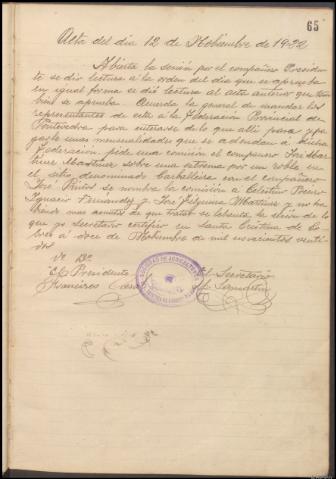 65
Acta del dia 12 de Nobiembre de 1922
Abierta la sesión por el compañero Presiden-
te se dió lectura a la orden del dia que se aprueba
en egual forma se dió lectura al acta anterior que tan
bien se aprueba. Acuerda la general de mandar los
representantes de esta a la Federación Provincial de
Pontevedra para interarse de lo que alli pasa y pa
garle unas mensualidades que se adeudan á dicha
Federación pide una comisión el compañero José Mar
tinez Martinez sobre una estrema por un roble en
el sitio denominado Carballeira con el compañero
José Pintos se nombra la comisión a Celestino
Ignacio Fernandez y José Martinez y no ha
biendo mas asuntos de que tratar se lebanta la sesion de lo
que yo Secretario certifico en Santa Cristina de
a doce de Nobiembre de mil novecientos venti
dos
Vº Bº
El Presidente El Secretario
Francisco
SOCIEDAD DE AGRICULTORES